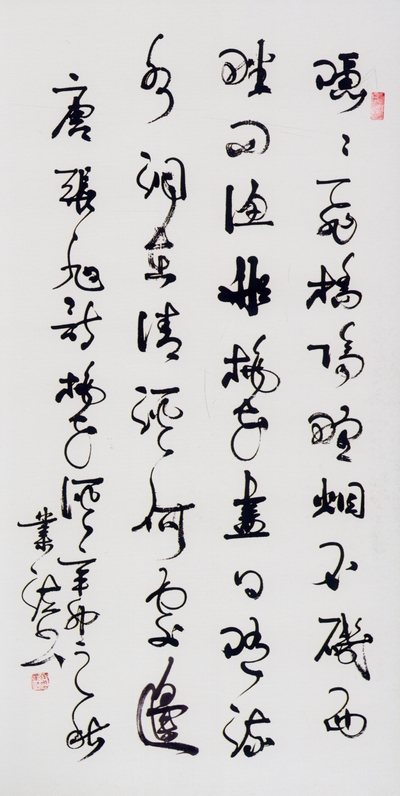 隱〻飛橋隔野烟石磯西
畔问渔船桃花盡日隨流
水洞在清溪何處邊
唐張旭詩桃花溪辛卯之秋
業